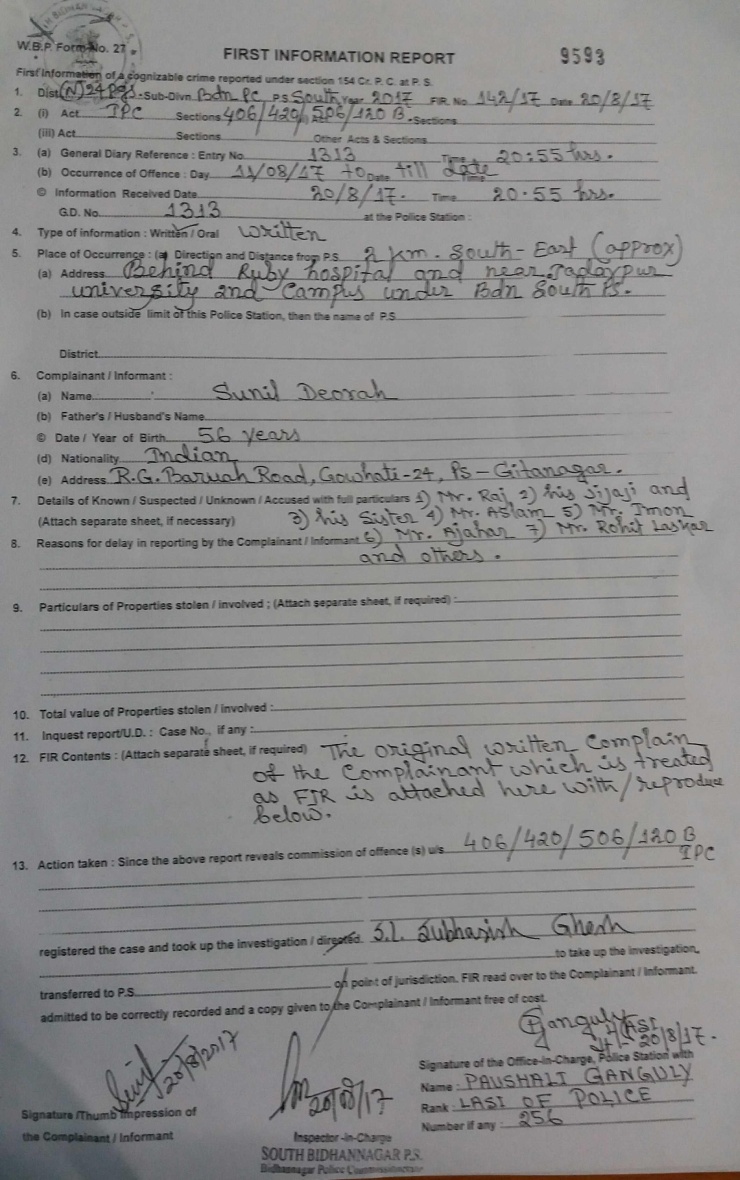 W.B.P. Form No. 27
FIRST INFORMATION REPORT
9593
First Information of a cognizable crime reported under section 154 Cr. P. C. at P. S.
1. Dist (N) 24 Pgs. Sub-Divn. Bdn PC P.S. South Year 2017 FIR. No. 142/17 Date 20/8/17
2. (i) Act IPC Sections 406/420/506/120 B. Sections
(iii) Act Sections Other Acts & Sections
3. (a) General Diary Reference : Entry No. 1313 Time 20:55 hrs.
(b) Occurrence of Offence : Day 11/08/17 to Date till date Time
© Information Received Date 20/8/17. Time 20.55 hrs.
G.D. No. 1313 at the Police Station :
4. Type of information : Written / Oral Written
5. Place of Occurrence : (a) Direction and Distance from P.S. 2 km. South-East (approx)
(a) Address Behind Ruby hospital and near Jadavpur
university 2nd Campus under Bdn South PS.
(b) In case outside limit of this Police Station, then the name of P.S.
District
6. Complainant / Informant :
(a) Name Sunil Deorah
(b) Father's / Husband's Name
© Date / Year of Birth 56 years
(d) Nationality Indian
(e) Address R.G. Baruah Road, Gowhati-24, PS – Gitanagar.
7. Details of Known / Suspected / Unknown / Accused with full particulars 1) Mr. Raj, 2) his Jijaji and
(Attach separate sheet, if necessary) 3) his Sister 4) Mr. Aslam 5) Mr. Imon
8. Reasons for delay in reporting by the Complainant / Informant 6) Mr. Ajahar 7) Mr. Rohit Laskar
and others.
9. Particulars of Properties stolen / involved ; (Attach separate sheet, if required) :
10. Total value of Properties stolen / involved :
11. Inquest report/U.D. : Case No., if any :
12. FIR Contents : (Attach separate sheet, if required) The original written Complain
of the Complainant which is treated
as FIR is attached here with/reproduce
below.
13. Action taken : Since the above report reveals commission of offence (s) u/s. 406/420/506/120B
IPC
registered the case and took up the investigation / directed. S.I. Subhasish Ghosh
to take up the investigation,
transferred to P.S. on point of jurisdiction. FIR read over to the Complainant / Informant.
admitted to be correctly recorded and a copy given to the Complainant / Informant free of cost.
PGanguly
LASI
20/8/17.
20/8/2017
20/08/17
Signature of the Office-in-Charge, Police Station with
Name : PAUSHALI GANGULY
Rank : LASI OF POLICE
Number if any : 256
Signature /Thumb Impression of
the Complainant / Informant
Inspector-in-Charge
SOUTH BIDHANNAGAR P.S.
Bidhannagar Police Commissionerate